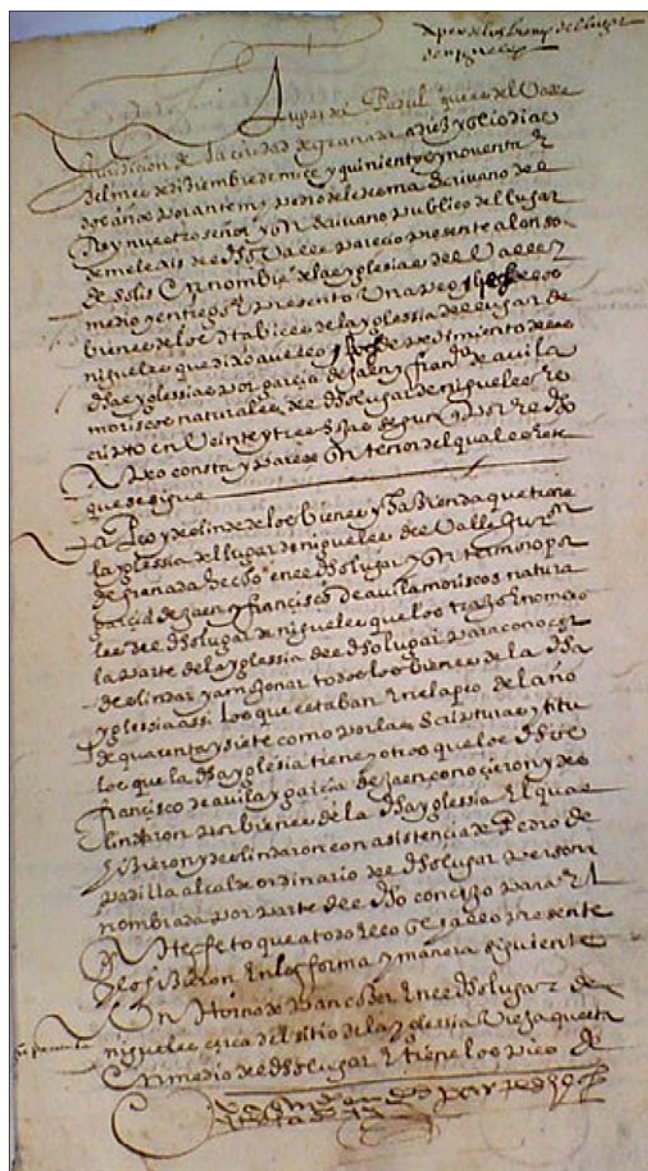 Apeo de los bienes del lugar
de niguelex
Lugar del Padul que es del Valle
Juridicion de la ciudad de granada a diez y ocho dias
del mes de diziembre de mill y quinientos y noventa e
dos años por ante mi Pedro de ledesma escrivano del
Rey nuestro señor y escrivano publico del lugar
de melexis de dho Valle parecio presente alonso
de Solis en nombre de las yglesias del Valle
medio y entrego e presento un apeo
bienes de los de la yglessia del lugar de
niguelex que dixo aver de pedimiento de
dha yglessia por garcia de Jaen y franco de avila
moriscos naturales del dho lugar de niguelex
en Veinte y tres segun por el dho
Apeo consta y parece tenor del qual es este
que se sigue
Apeo y deslinde de los bienes y hazienda que tiene
la yglessia del lugar de niguelex del Valle Juron
de granada hecho en el dho lugar y en termino por
garcia de Jaen y francisco de avila moriscos natura
les del dho lugar de niguelex que los traxo e nombro
la parte de la yglessia del dho lugar para conocer
deslindar y amojonar todos los bienes de la dha
yglessia assi los que estaban en el apeo del año
de quarenta y siete como por las Scripturas y titu
los que la dha yglesia tiene y otros que los dhos
francisco de avila y garcia de Jaen conocieron y des
lindaron por bienes de la dha yglessia el qual
hizieron y deslindaron con asistencia de Pedro de
padilla alcalde ordinario del dho lugar person
nombrada por parte del dho concejo para el
dho efeto que a todo ello se hallo presente
e lo hizieron en la forma y manera siguiente
Un Horno de pan cozer en el dho lugar de
niguelex cerca del sitio de la yglessia Vieja questa
En medio del dho lugar e tiene los